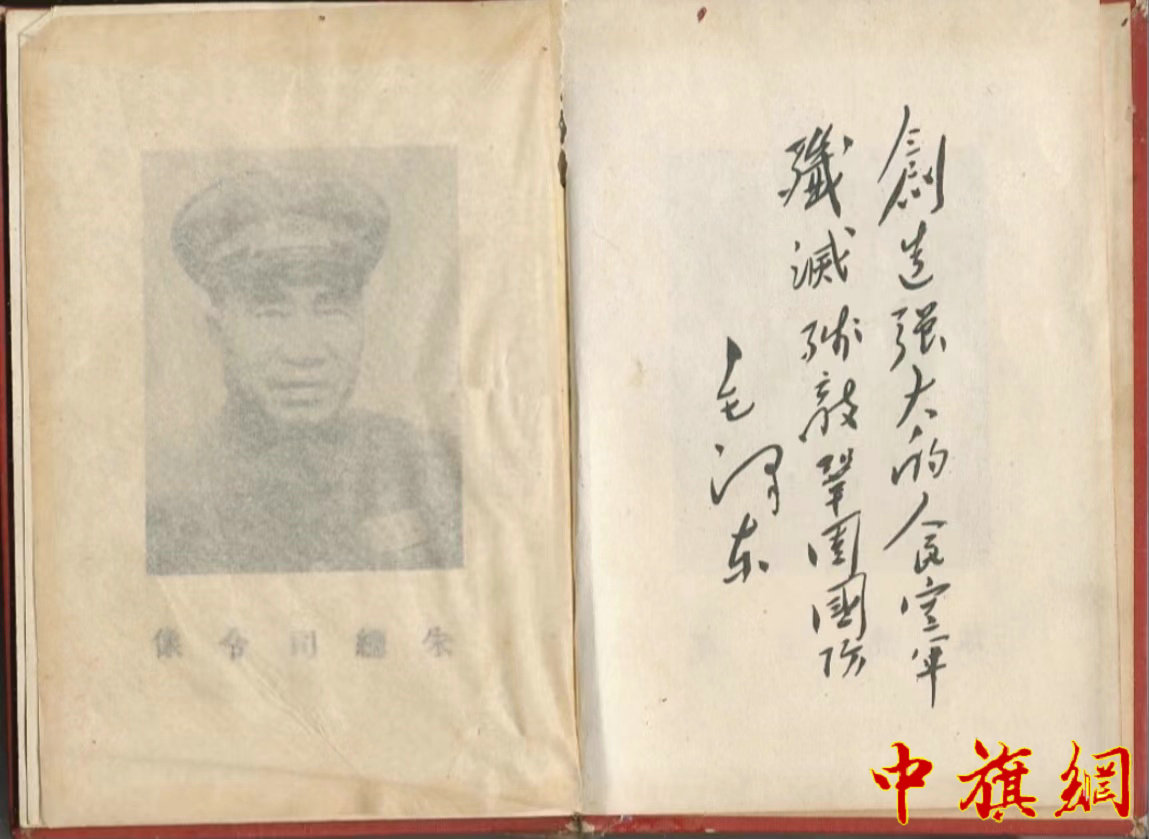 朱總司令像
創造强大的人民空軍
殲滅殘敵鞏固國防
毛澤東
中旗網